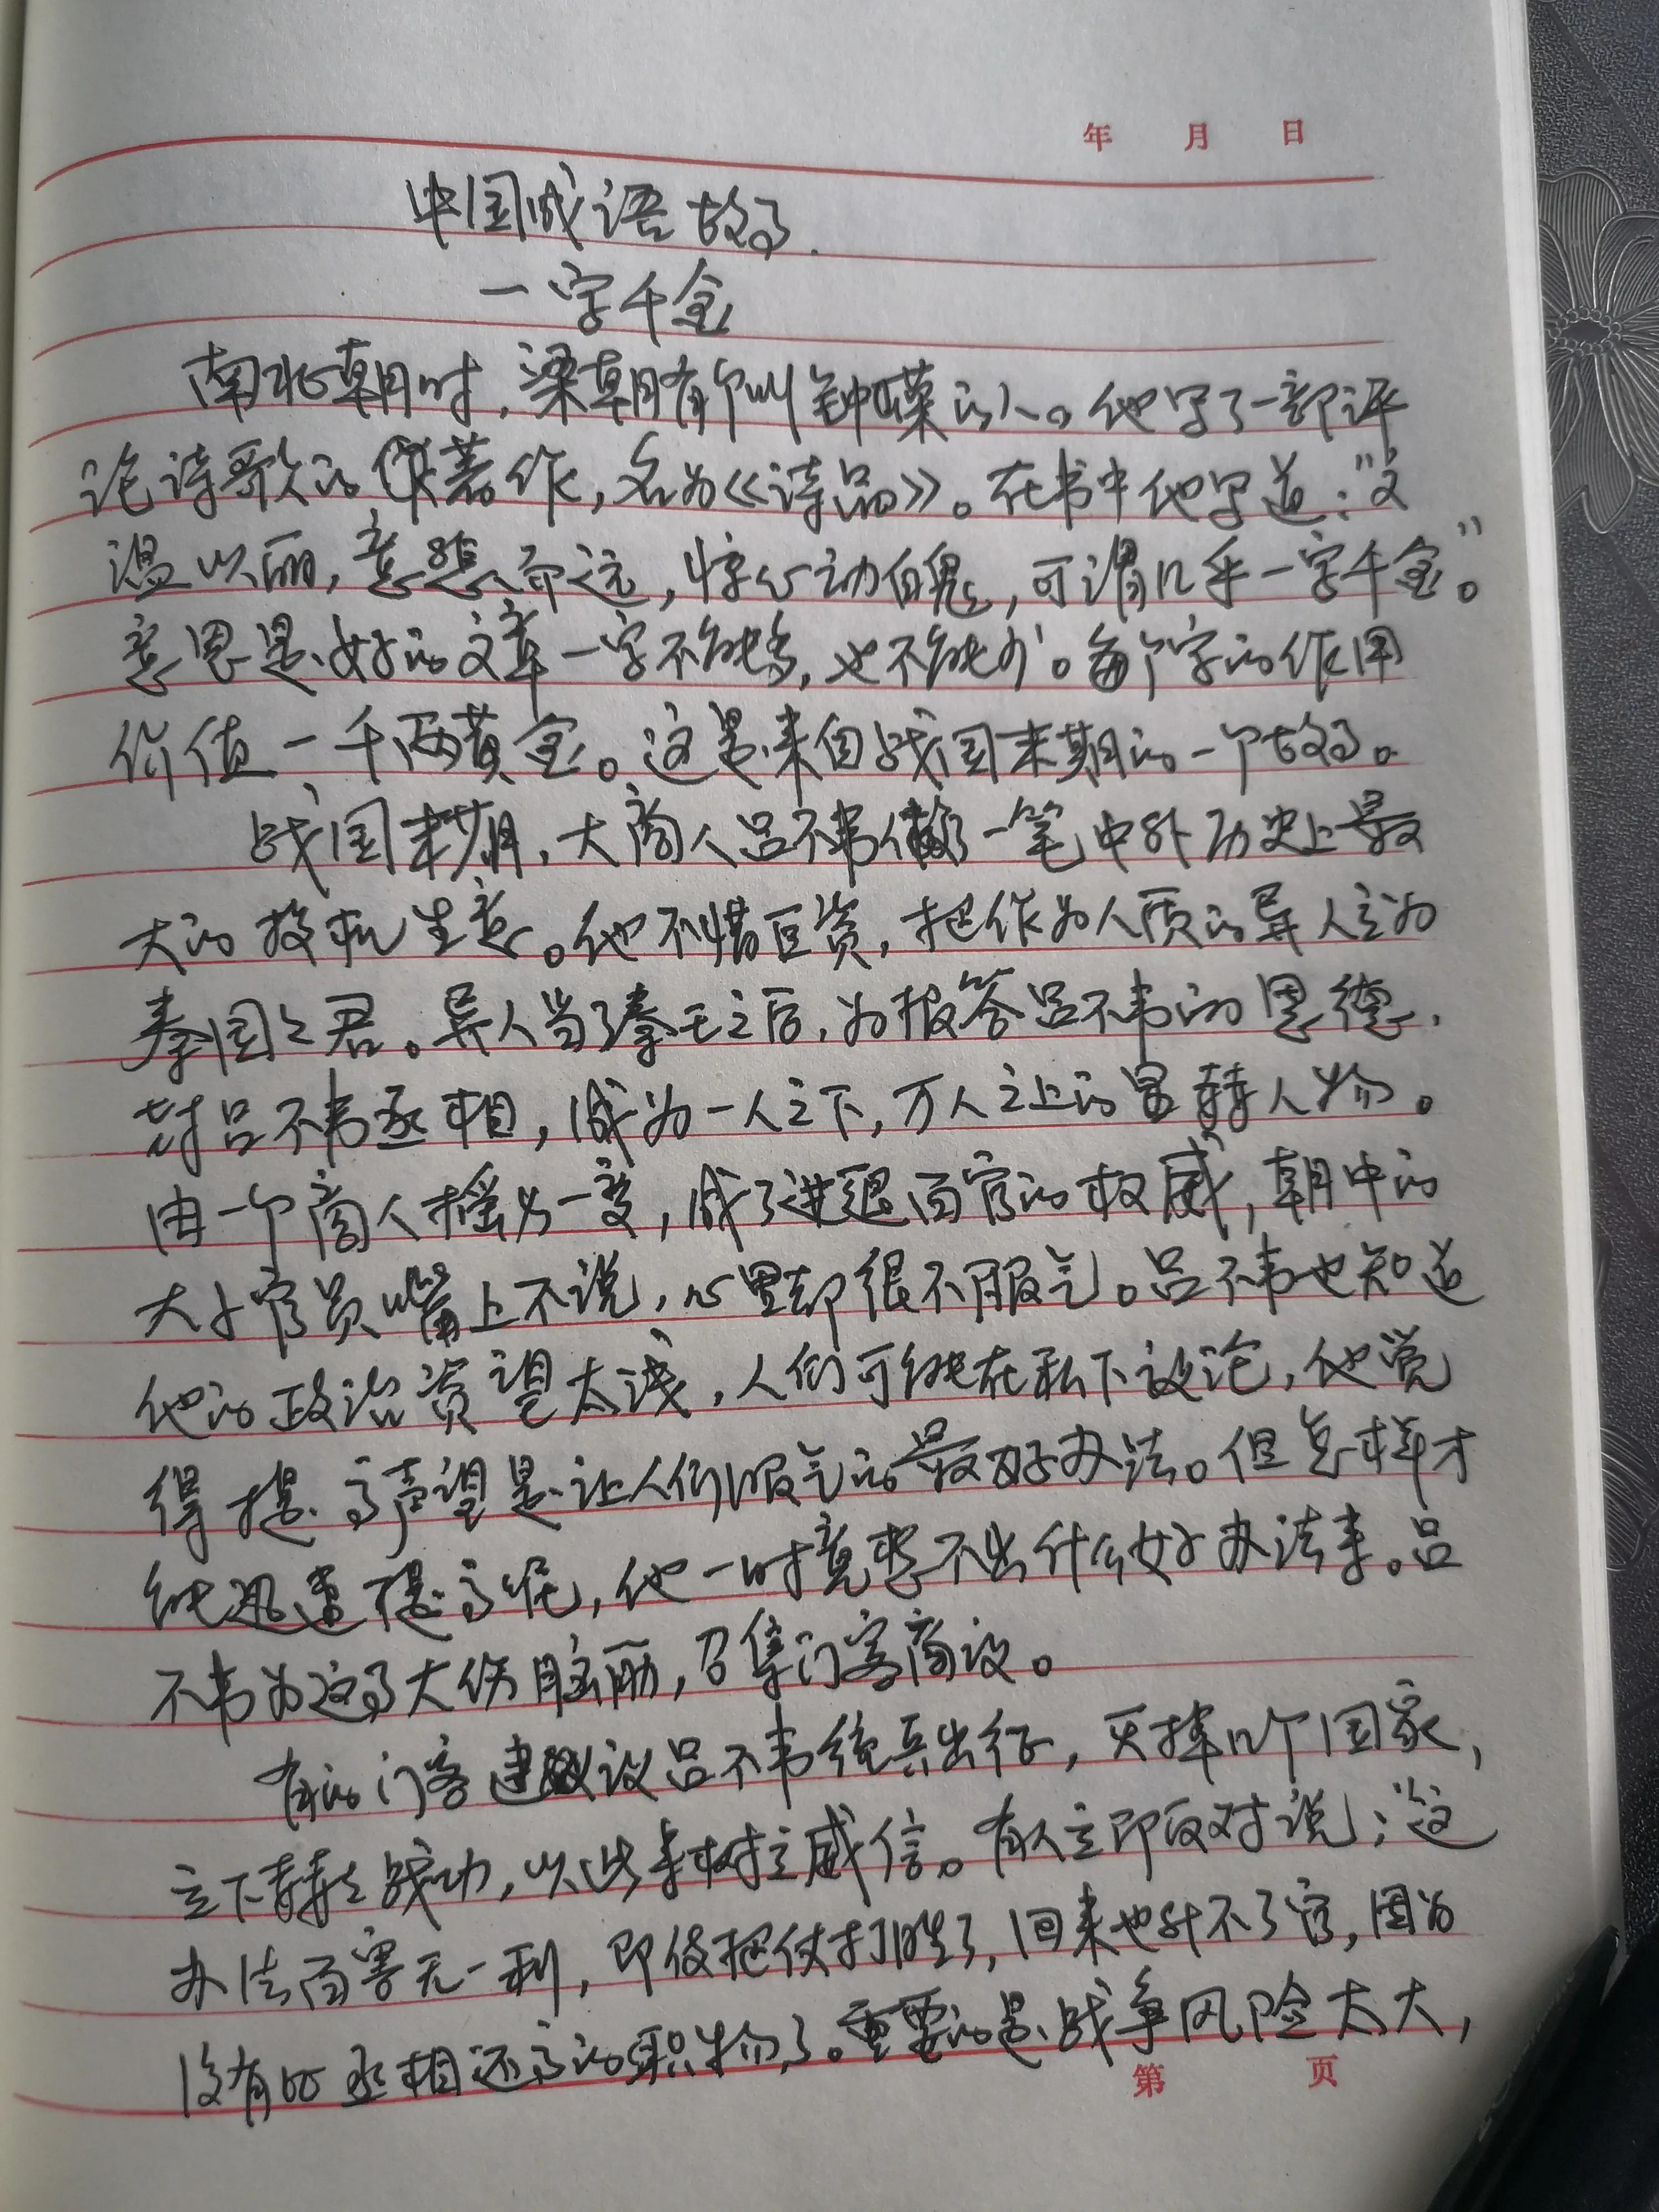 年 月 日
中国成语故事
一字千金
南北朝时，梁朝有个叫钟嵘的人。他写了一部评
论诗歌的著作，名为《诗品》。在书中他写道："文
温以丽，意悲而远，惊心动魄，可谓几乎一字千金"。
意思是好的文章一字不能多，也不能少。每个字的作用
价值一千两黄金。这是来自战国末期的一个故事。
战国末期，大商人吕不韦做了一笔中外历史上最
大的投机生意。他不惜巨资，把作为人质的异人立为
秦国之君。异人当了秦王之后，为报答吕不韦的恩德，
封吕不韦丞相，成为一人之下，万人之上的显赫人物。
由一个商人摇身一变，成了进退百官的权威，朝中的
大小官员嘴上不说，心里却很不服气。吕不韦也知道
他的政治资望太浅，人们可能在私下议论，他觉
得提高声望是让人们服气的最好办法。但怎样才
能迅速提高呢，他一时竟想不出什么好办法来。吕
不韦为这事大伤脑筋，召集门客商议。
有的门客建议吕不韦统兵出征，灭掉几个国家，
立下赫赫战功，以此来树立威信。有人立即反对说："这
办法百害无一利，即使把仗打胜了，回来也升不了官，因为
没有比丞相还高的职务了。重要的是战争风险太大，
第 页